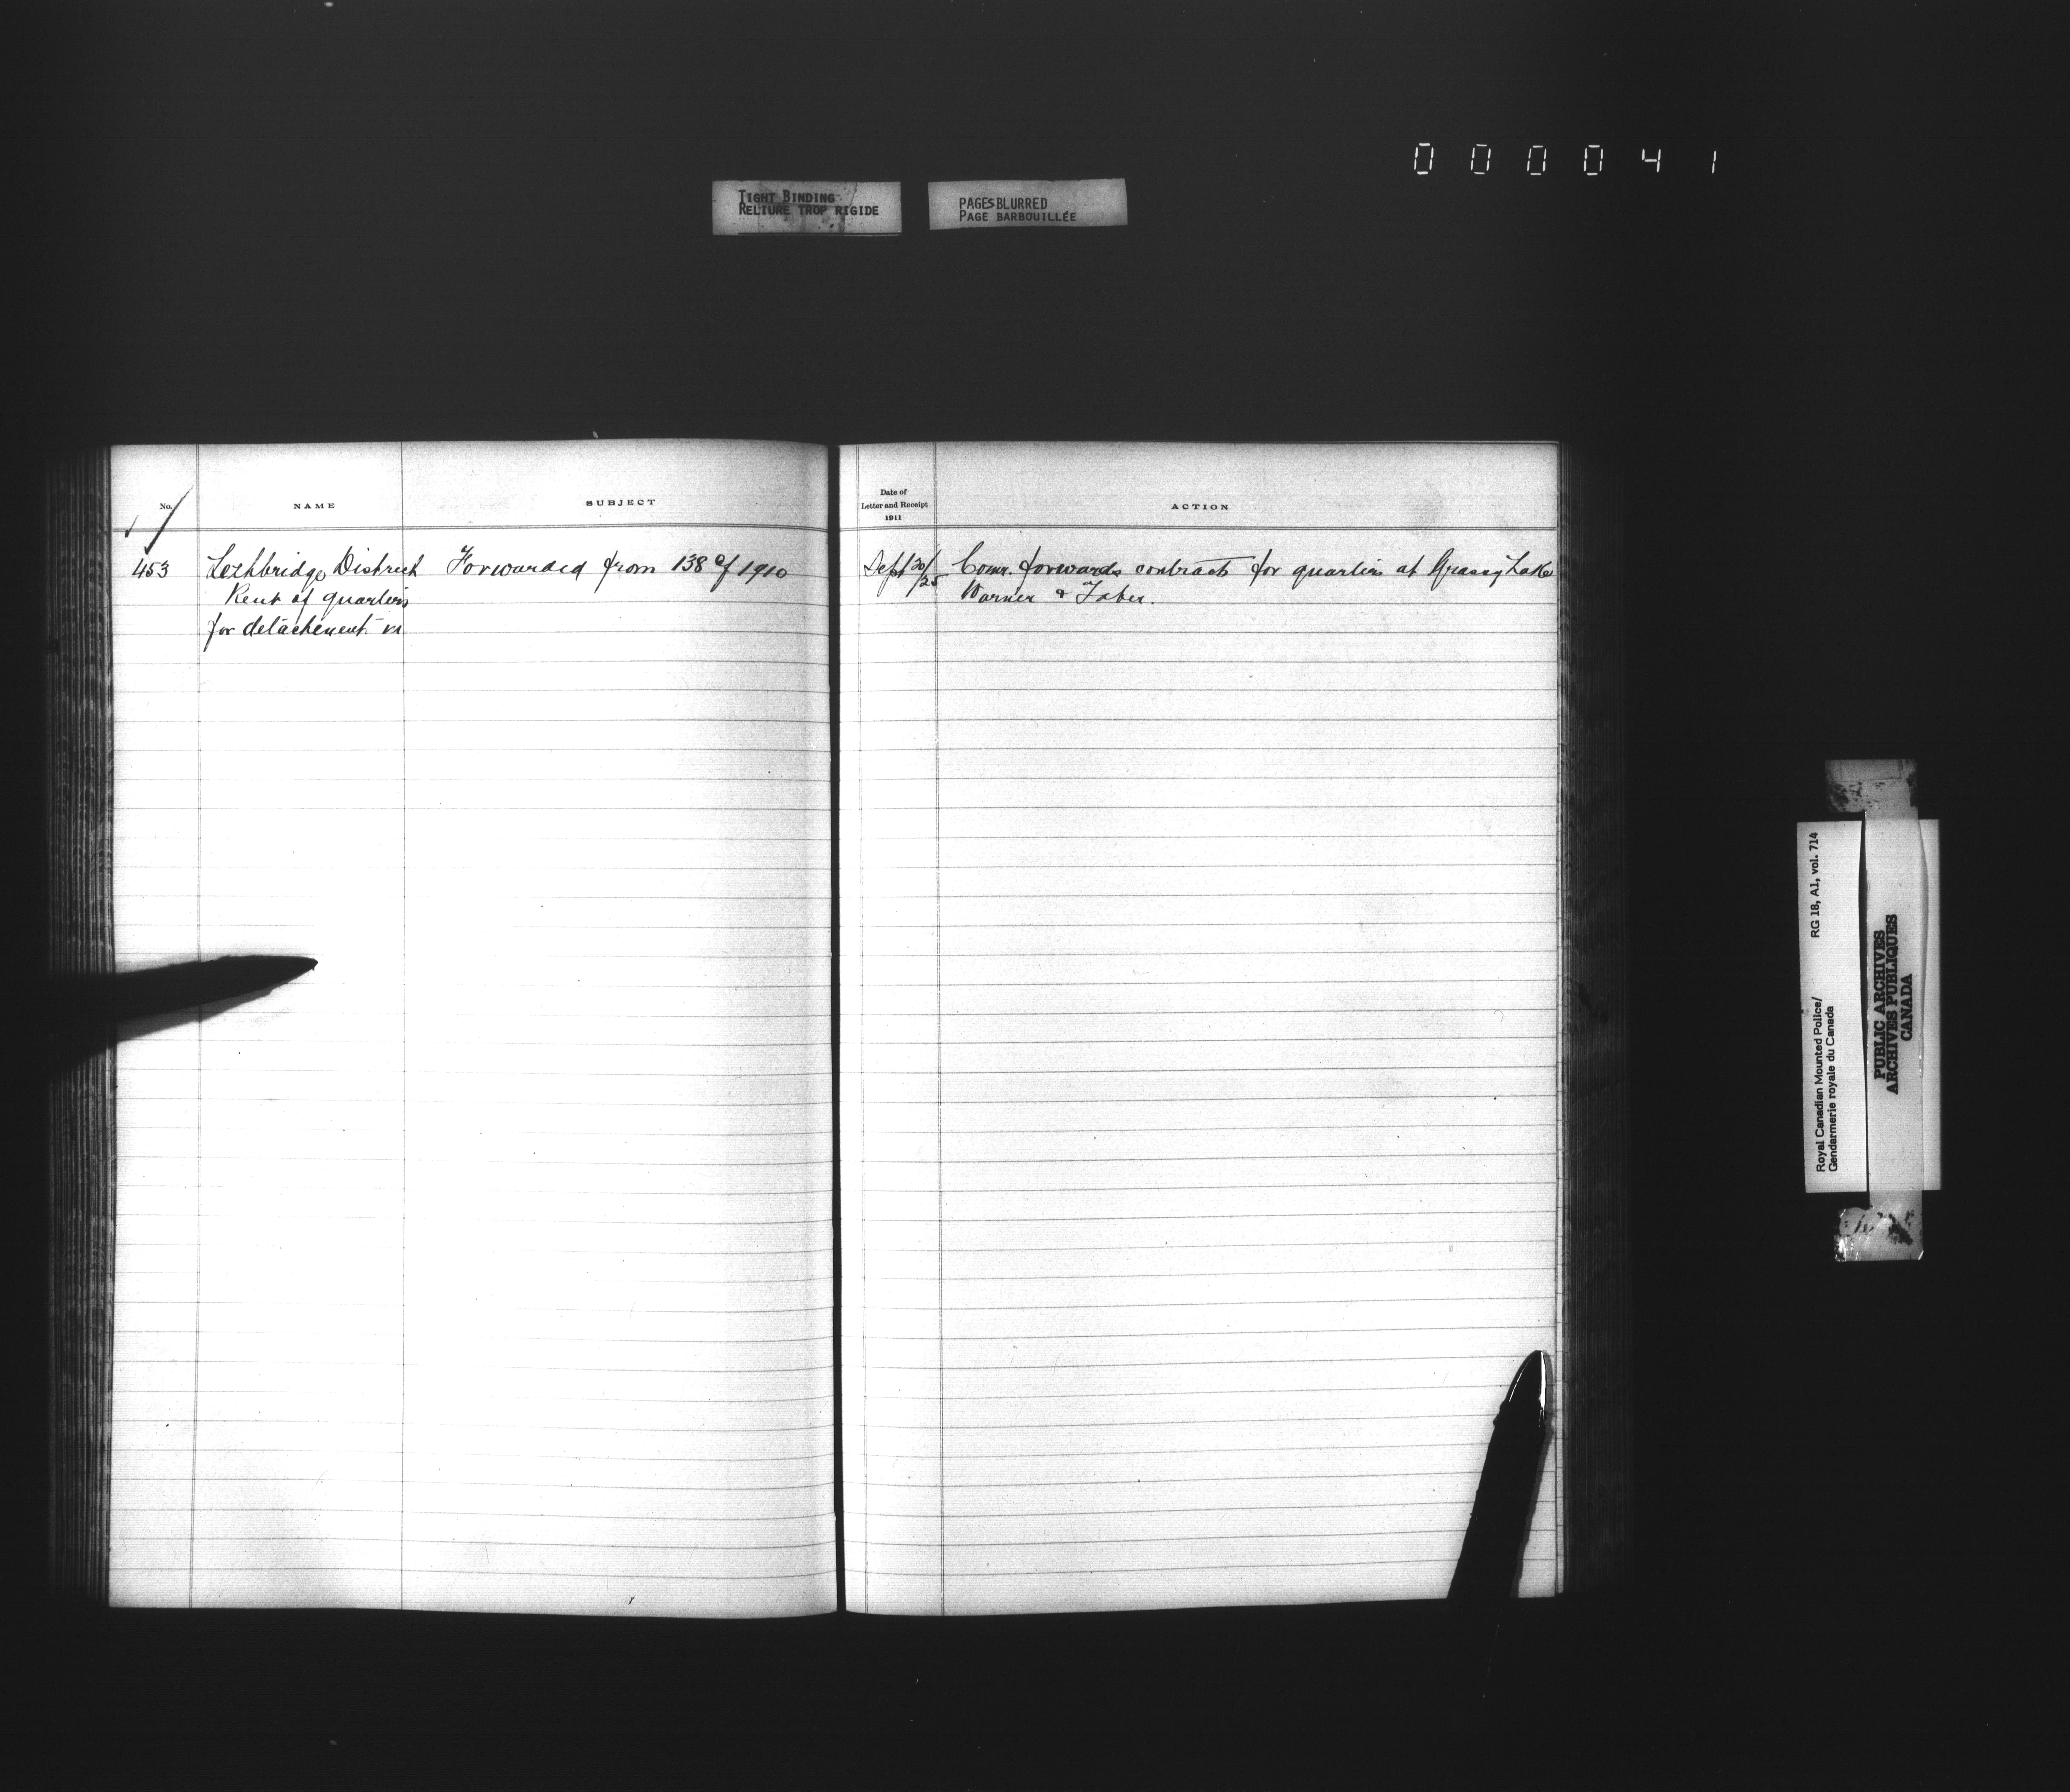 000041
TIGHT BINDING
RELIURE TROP RIGIDE
PAGES BLURRED
PAGE BARBOUILLÉE
No.
NAME
SUBJECT
453
Lethbridge District
Rent of quarters
for detachment in
Forwarded from 138 of 1910
Date of
Letter and Receipt
1911
ACTION
Sept 20/25
Comr. forwards contracts for quarters at Grassy Lake
Warner & Taber.
RG 18, A1, vol. 714
Royal Canadian Mounted Police/
Gendarmerie royale du Canada
PUBLIC ARCHIVES
ARCHIVES PUBLIQUES
CANADA